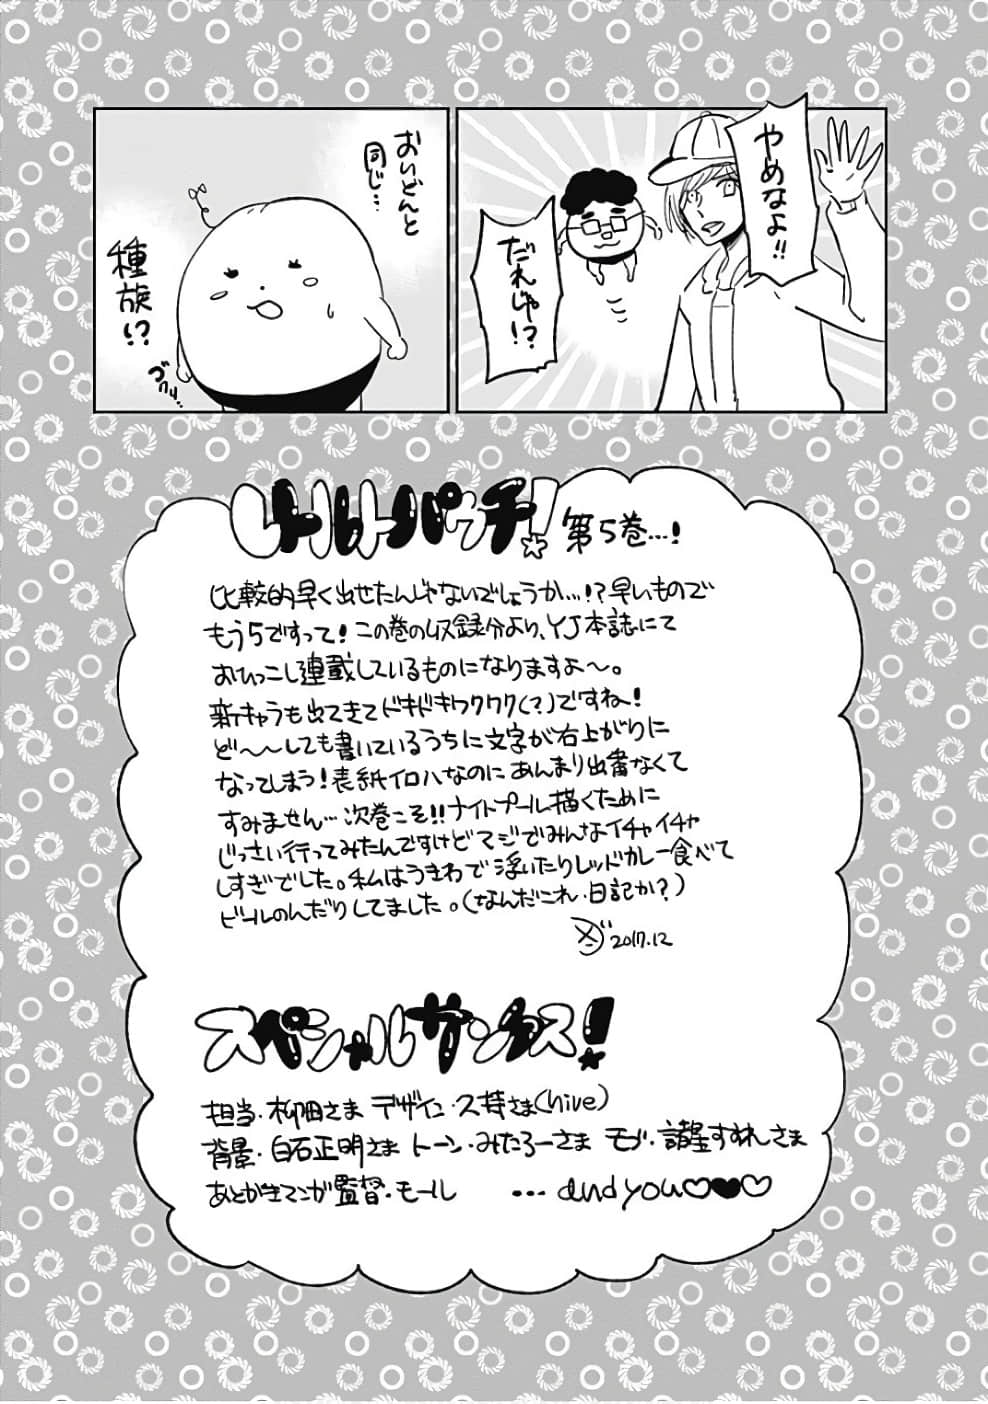 やめなよ!!
だれじゃ!?
おいどんと
同じ…
種族!?
ゴクリ…
レトルトパウチ! 第5巻…!
比較的早く出せたんじゃないでしょうか…!?早いもので
もう5ですって!この巻の収録分より、YJ本誌にて
おひっこし連載しているものになりますよ〜。
新キャラも出てきてドキドキワクワク(?)ですね!
ど〜〜しても書いているうちに文字が右上がりに
なってしまう!表紙イロハなのにあんまり出番なくて
すみません…次巻こそ!!ナイトプール描くために
じっさい行ってみたんですけどマジでみんなイチャイチャ
しすぎでした。私はうきわで浮いたりレッドカレー食べて
ビールのんだりしてました。(なんだこれ・日記か?)
2017.12
スペシャルサンクス!
担当・柳田さま デザイン・久持さま(hive)
背景・白石正明さま トーン・みたろーさま モブ・すみれさま
あとがきマンガ監督・モール …and you♡♥♡